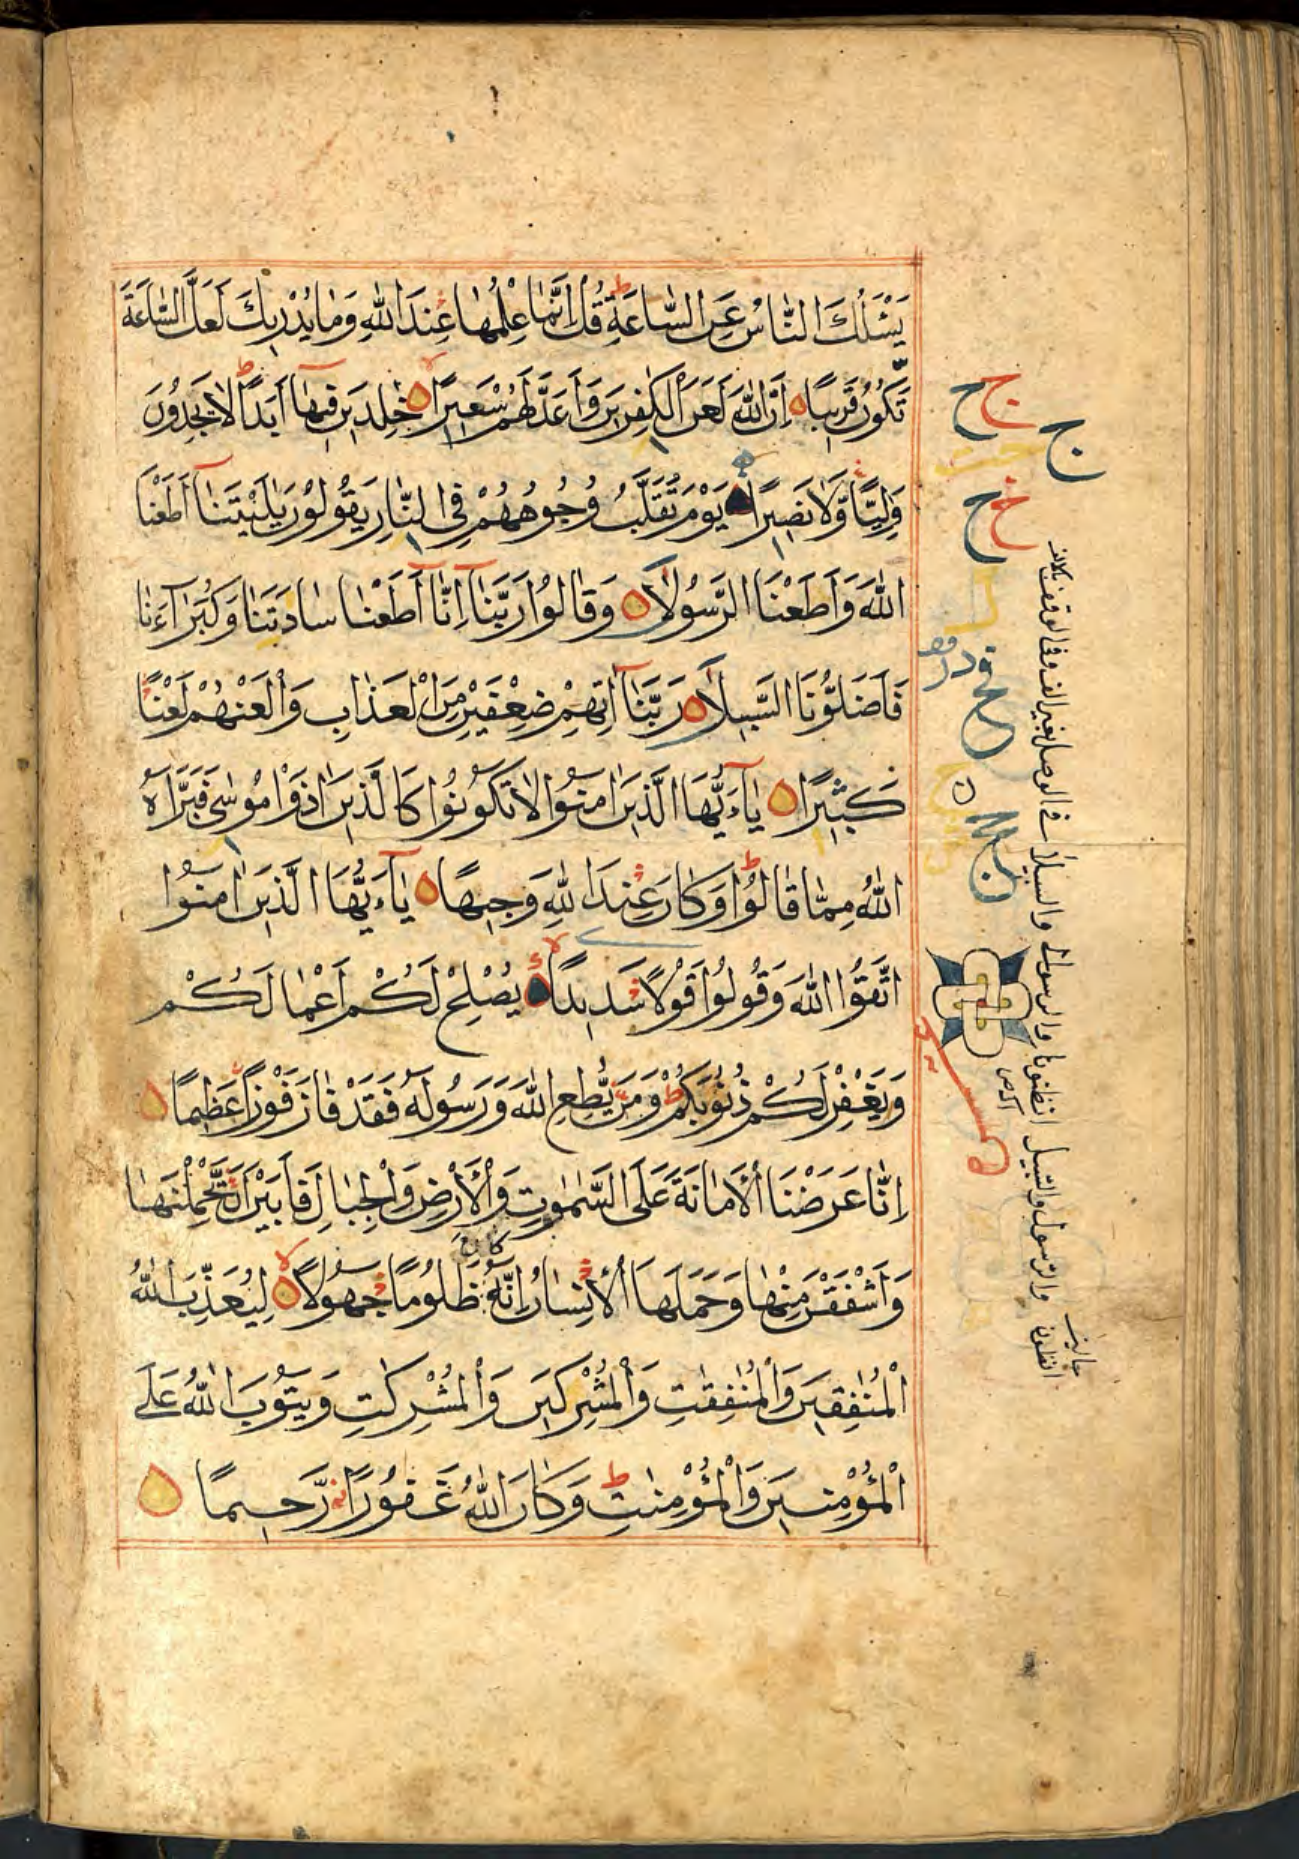 يَسْـَٔلُكَ النَّاسُ عَنِ السَّاعَةِ ط قُلْ اِنَّمَا عِلْمُهَا عِنْدَ اللّٰهِ وَمَا يُدْرِيكَ لَعَلَّ السَّاعَةَ
تَكُوْنُ قَرِيبًا اِنَّ اللّٰهَ لَعَنَ الْكٰفِرِينَ وَاَعَدَّ لَهُمْ سَعِيرًا لا خٰلِدِينَ فِيهَآ اَبَدًا ط لَا يَجِدُوْنَ
وَلِيًّا وَّلَا نَصِيرًا يَوْمَ تُقَلَّبُ وُجُوْهُهُمْ فِى النَّارِ يَقُوْلُوْنَ يٰلَيْتَنَآ اَطَعْنَا
اللّٰهَ وَاَطَعْنَا الرَّسُوْلَا وَقَالُوْا رَبَّنَآ اِنَّآ اَطَعْنَا سَادَتَنَا وَكُبَرَآءَنَا
فَاَضَلُّوْنَا السَّبِيلَا رَبَّنَآ اٰتِهِمْ ضِعْفَيْنِ مِنَ الْعَذَابِ وَالْعَنْهُمْ لَعْنًا
كَبِيرًا يٰٓاَيُّهَا الَّذِينَ اٰمَنُوْا لَا تَكُوْنُوْا كَالَّذِينَ اٰذَوْا مُوْسٰى فَبَرَّاَهُ
اللّٰهُ مِمَّا قَالُوْا ط وَكَانَ عِنْدَ اللّٰهِ وَجِيهًا يٰٓاَيُّهَا الَّذِينَ اٰمَنُوا
اتَّقُوا اللّٰهَ وَقُوْلُوْا قَوْلًا سَدِيدًا لا يُصْلِحْ لَكُمْ اَعْمَالَكُمْ
وَيَغْفِرْ لَكُمْ ذُنُوْبَكُمْ ط وَمَنْ يُّطِعِ اللّٰهَ وَرَسُوْلَهٗ فَقَدْ فَازَ فَوْزًا عَظِيمًا
اِنَّا عَرَضْنَا الْاَمَانَةَ عَلَى السَّمٰوٰتِ وَالْاَرْضِ وَالْجِبَالِ فَاَبَيْنَ اَنْ يَّحْمِلْنَهَا
وَاَشْفَقْنَ مِنْهَا وَحَمَلَهَا الْاِنْسَانُ اِنَّهٗ كَانَ ظَلُوْمًا جَهُوْلًا لا لِيُعَذِّبَ اللّٰهُ
الْمُنٰفِقِينَ وَالْمُنٰفِقٰتِ وَالْمُشْرِكِينَ وَالْمُشْرِكٰتِ وَيَتُوْبَ اللّٰهُ عَلَى
الْمُؤْمِنِينَ وَالْمُؤْمِنٰتِ ط وَكَانَ اللّٰهُ غَفُوْرًا رَّحِيمًا